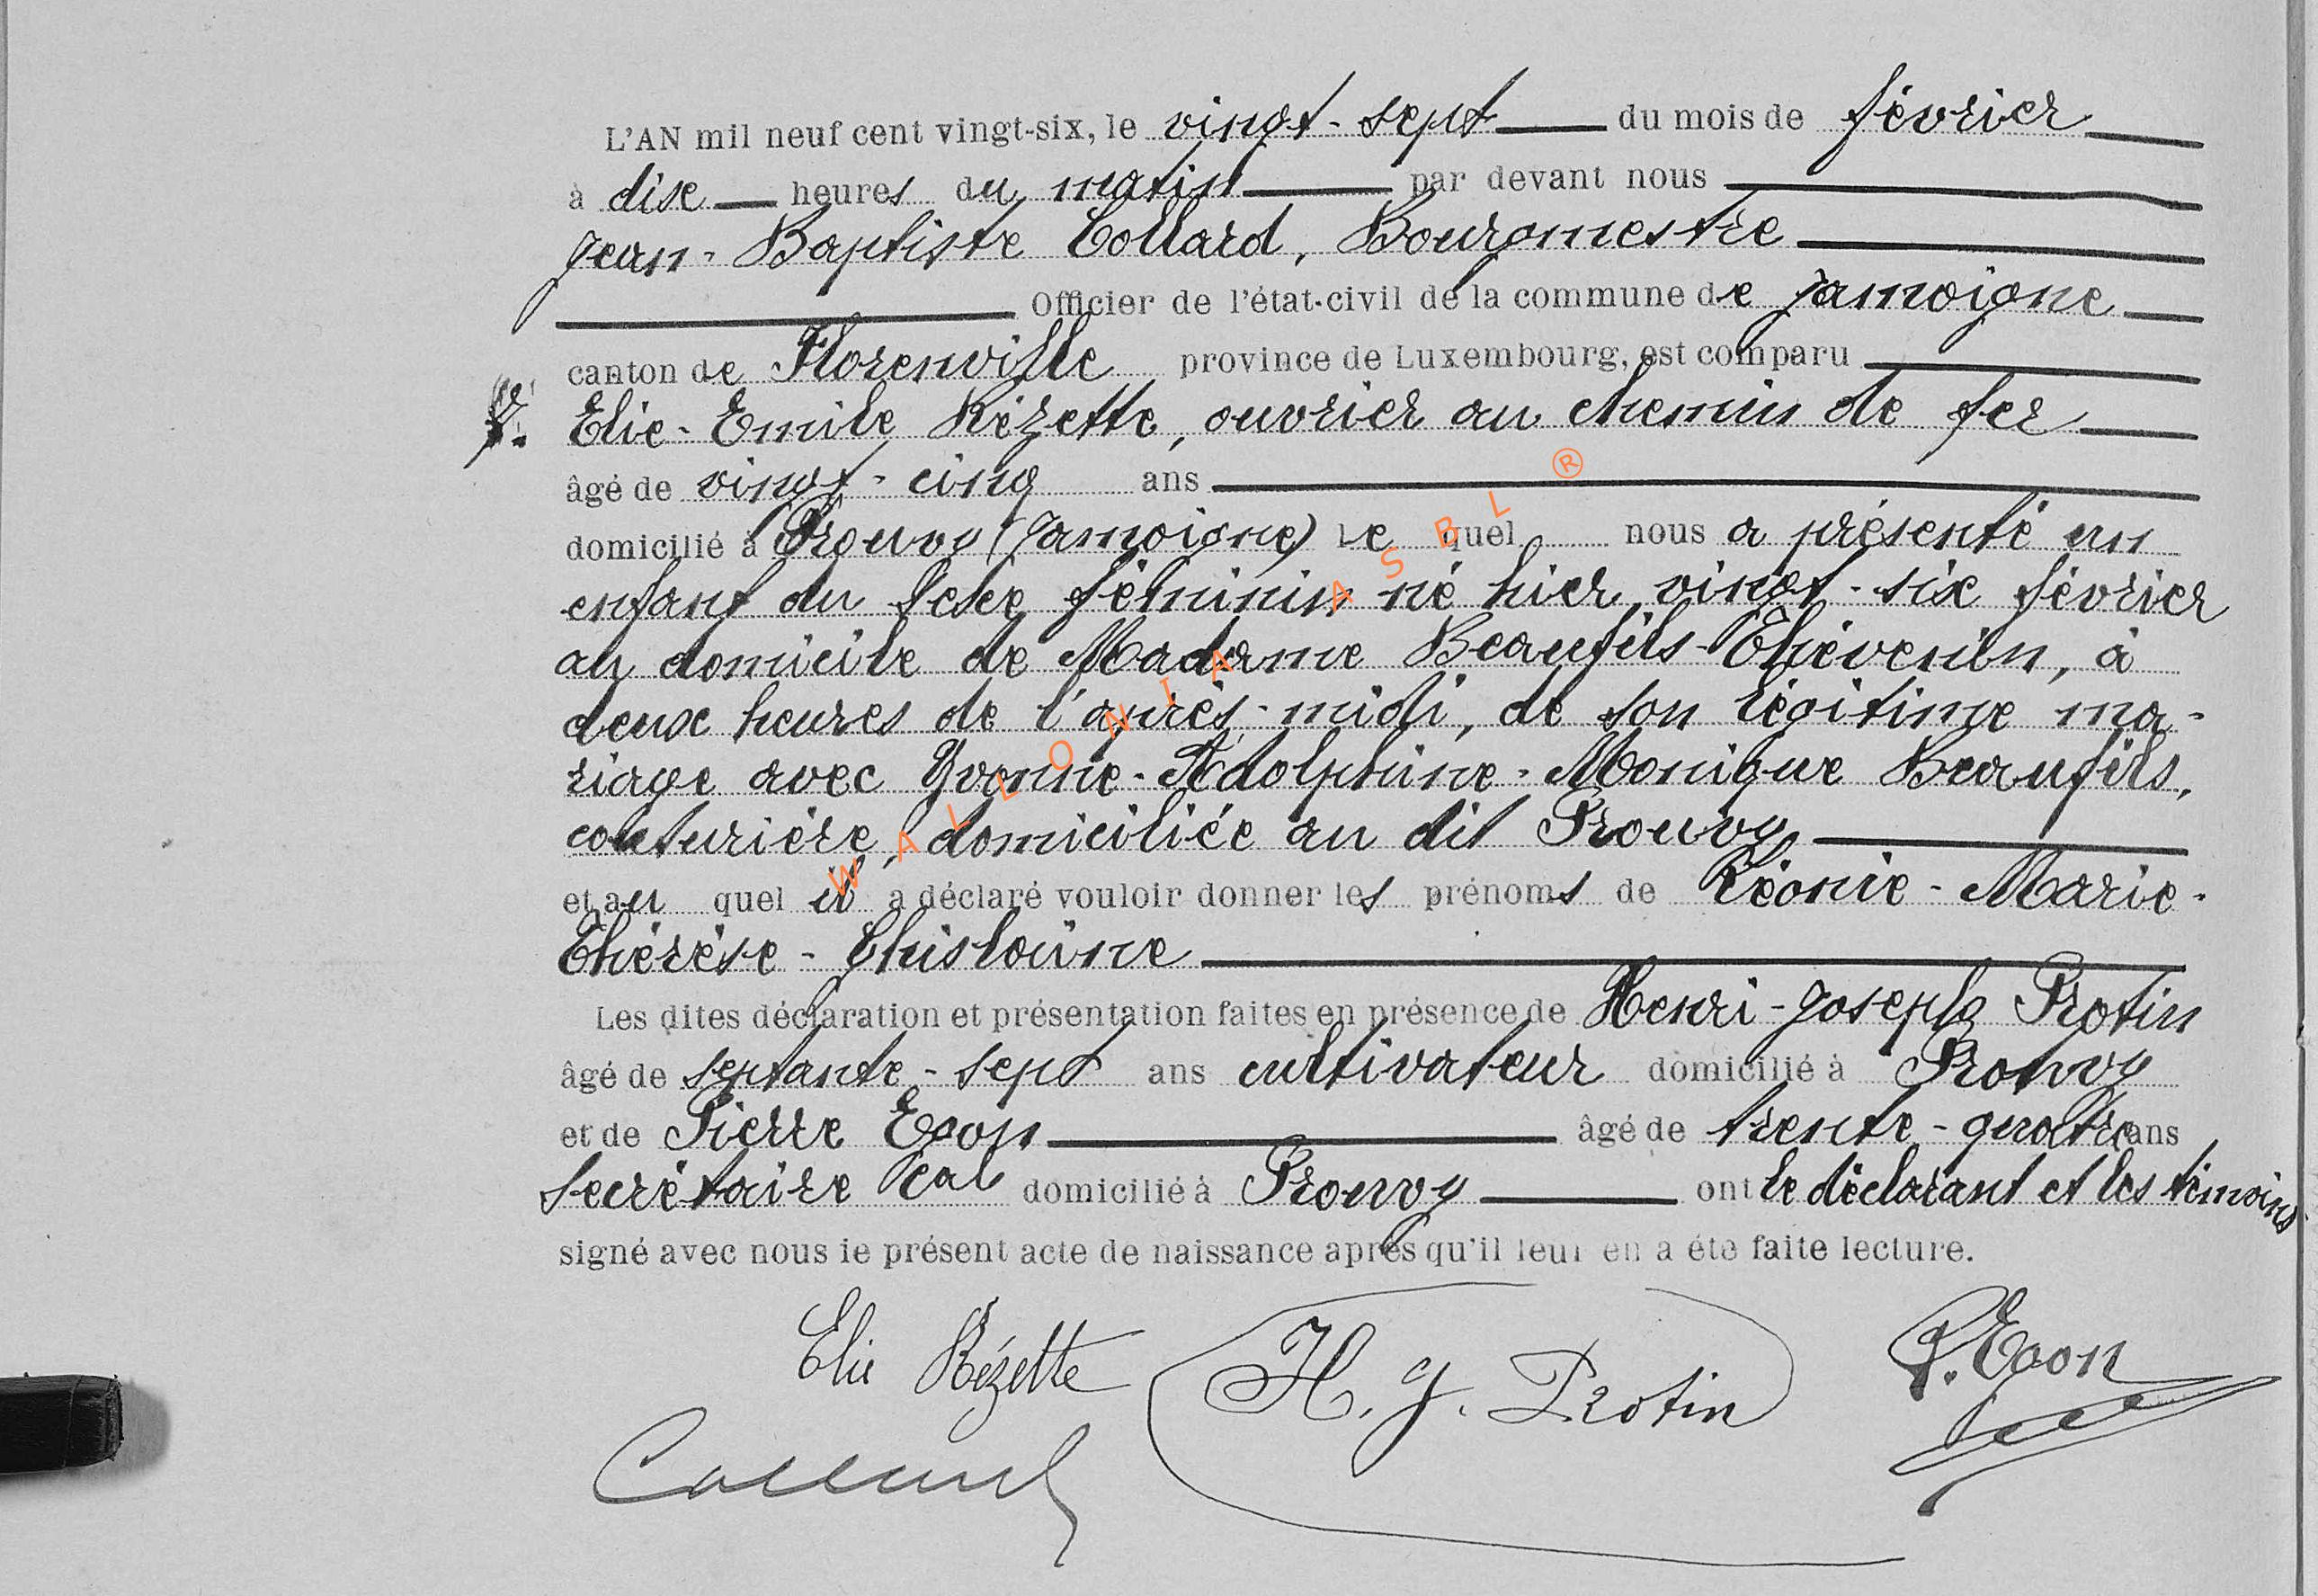 L'AN mil neuf cent vingt-six, le vingt-sept du mois de février
à dix heures du matin par devant nous
Jean-Baptiste Collard, Bourgmestre
Officier de l'état-civil de la commune de Jamoigne
canton de Florenville province de Luxembourg, est comparu
Elie-Emile Rézette, ouvrier au chemin de fer
âgé de vingt-cinq ans
domicilié à Prouvy (Jamoigne) lequel nous a présenté un
enfant du sexe féminin né hier, vingt-six février
au domicile de Madame Beaufils-Thévenin, à
deux heures de l'après-midi, de son légitime ma-
riage avec Yvonne-Adolphine-Monique Beaufils,
couturière, domiciliée au dit Prouvy
et au quel il a déclaré vouloir donner les prénoms de Léonie-Marie-
Thérèse-Ghislaine
Les dites déclaration et présentation faites en présence de Henri-Joseph Protin
âgé de septante-sept ans cultivateur domicilié à Prouvy
et de Pierre Evon âgé de trente-quatre ans
secrétaire cal domicilié à Prouvy ont le déclarant et les témoins
signé avec nous le présent acte de naissance après qu'il leur en a été faite lecture.
Elie Rézette H. J. Protin P. Evon
Collard
WALLONIA ASBL ®